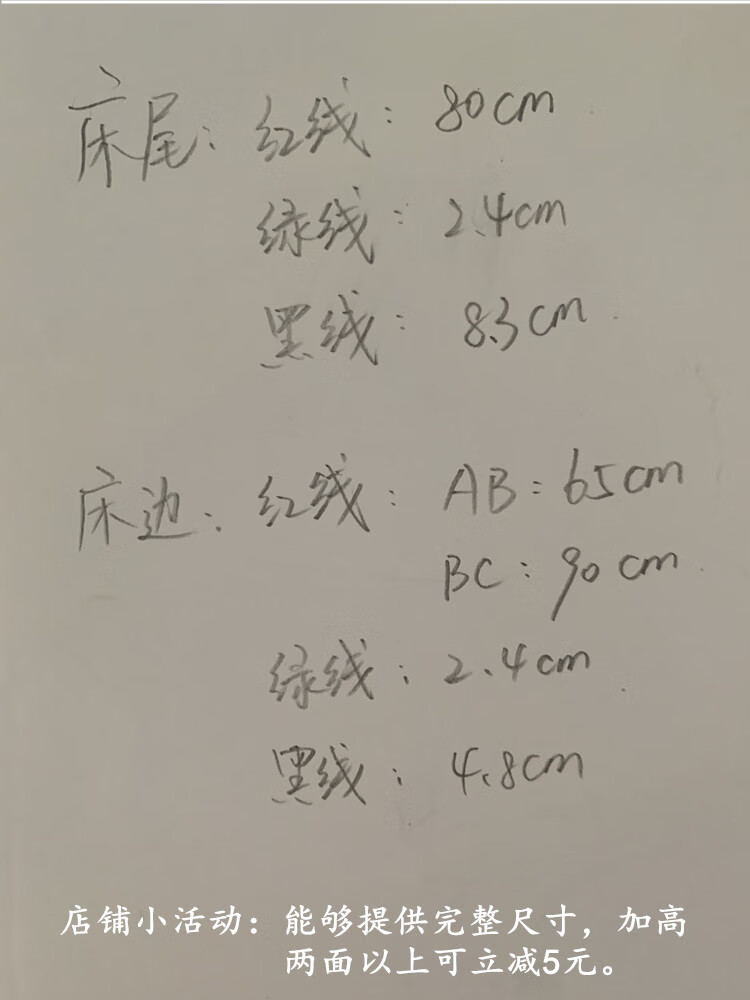 床尾：红线：80cm
绿线：2.4cm
黑线：8.3cm
床边：红线：AB：65cm
BC：90cm
绿线：2.4cm
黑线：4.8cm
店铺小活动：能够提供完整尺寸，加高
两面以上可立减5元。